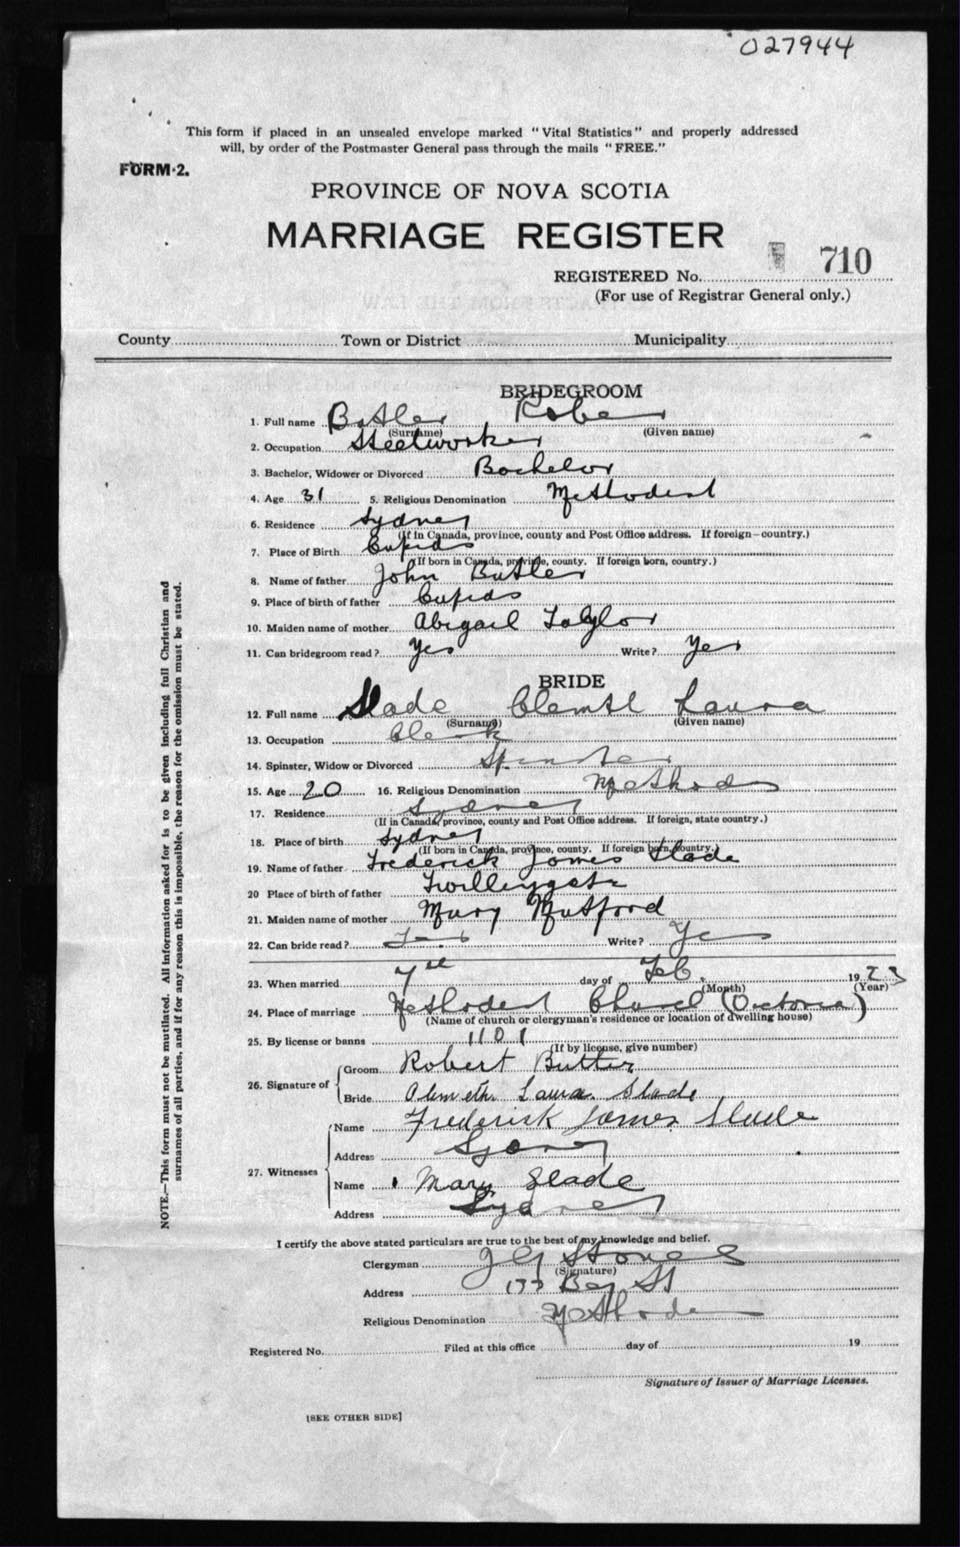 027944
This form if placed in an unsealed envelope marked "Vital Statistics" and properly addressed
will, by order of the Postmaster General pass through the mails "FREE."
FORM 2.
PROVINCE OF NOVA SCOTIA
MARRIAGE REGISTER
REGISTERED No. 710
(For use of Registrar General only.)
County Town or District Municipality
BRIDEGROOM
1. Full name Butler Robe
(Surname) (Given name)
2. Occupation Steelworker
3. Bachelor, Widower or Divorced Bachelor
4. Age 31 5. Religious Denomination Methodist
6. Residence Sydney
(If in Canada, province, county and Post Office address. If foreign—country.)
7. Place of Birth Cupids
(If born in Canada, province, county. If foreign born, country.)
8. Name of father John Butler
9. Place of birth of father Cupids
10. Maiden name of mother Abigail Taylor
11. Can bridegroom read? Yes Write? Yes
BRIDE
12. Full name Slade Laura
(Surname) (Given name)
13. Occupation Clerk
14. Spinster, Widow or Divorced Spinster
15. Age 20 16. Religious Denomination Methodis
17. Residence Sydney
(If in Canada, province, county and Post Office address. If foreign, state country.)
18. Place of birth Sydney
(If born in Canada, province, county. If foreign born, country.)
19. Name of father Frederick James Slade
20 Place of birth of father Twillingate
21. Maiden name of mother Mary Mutford
22. Can bride read? Yes Write? Yes
23. When married 7th day of Feb. 1923
(Month) (Year)
24. Place of marriage Methodist Church (Victoria)
(Name of church or clergyman's residence or location of dwelling house)
25. By license or banns 1101
(If by license, give number)
26. Signature of Groom Robert Butler
Bride Laura Slade
27. Witnesses Name Frederick James Slade
Address Sydney
Name Mary Slade
Address Sydney
I certify the above stated particulars are true to the best of my knowledge and belief.
Clergyman
(Signature)
Address Bay St
Religious Denomination Methodis
Registered No. Filed at this office day of 19
Signature of Issuer of Marriage Licenses.
[SEE OTHER SIDE]
NOTE.—This form must not be mutilated. All information asked for is to be given including full Christian and
surnames of all parties, and if for any reason this is impossible, the reason for the omission must be stated.